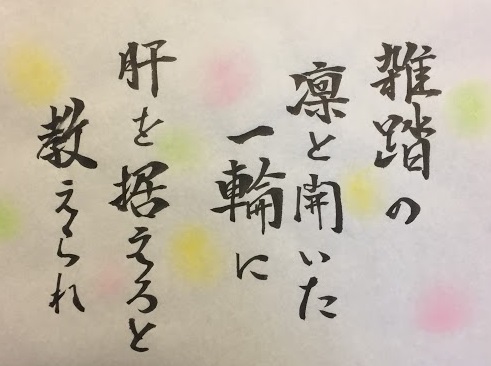 雑踏の
凛と開いた
一輪に
肝を据えろと
教えられ